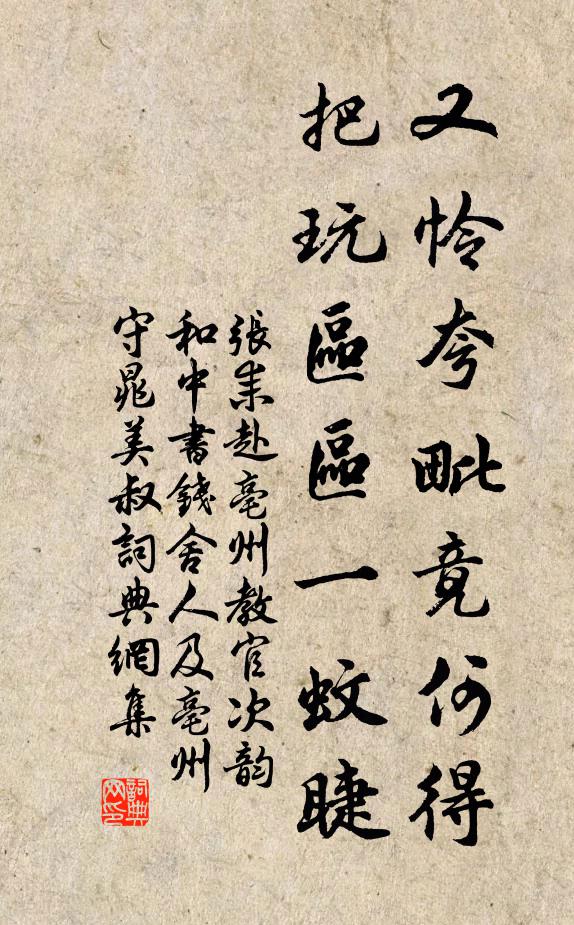 又怜夸毗竟何得
把玩區區一蚊睫
張耒赴亳州教官次韵
和中書錢舍人及亳州
守晁美叔詞典網集
詞典网印